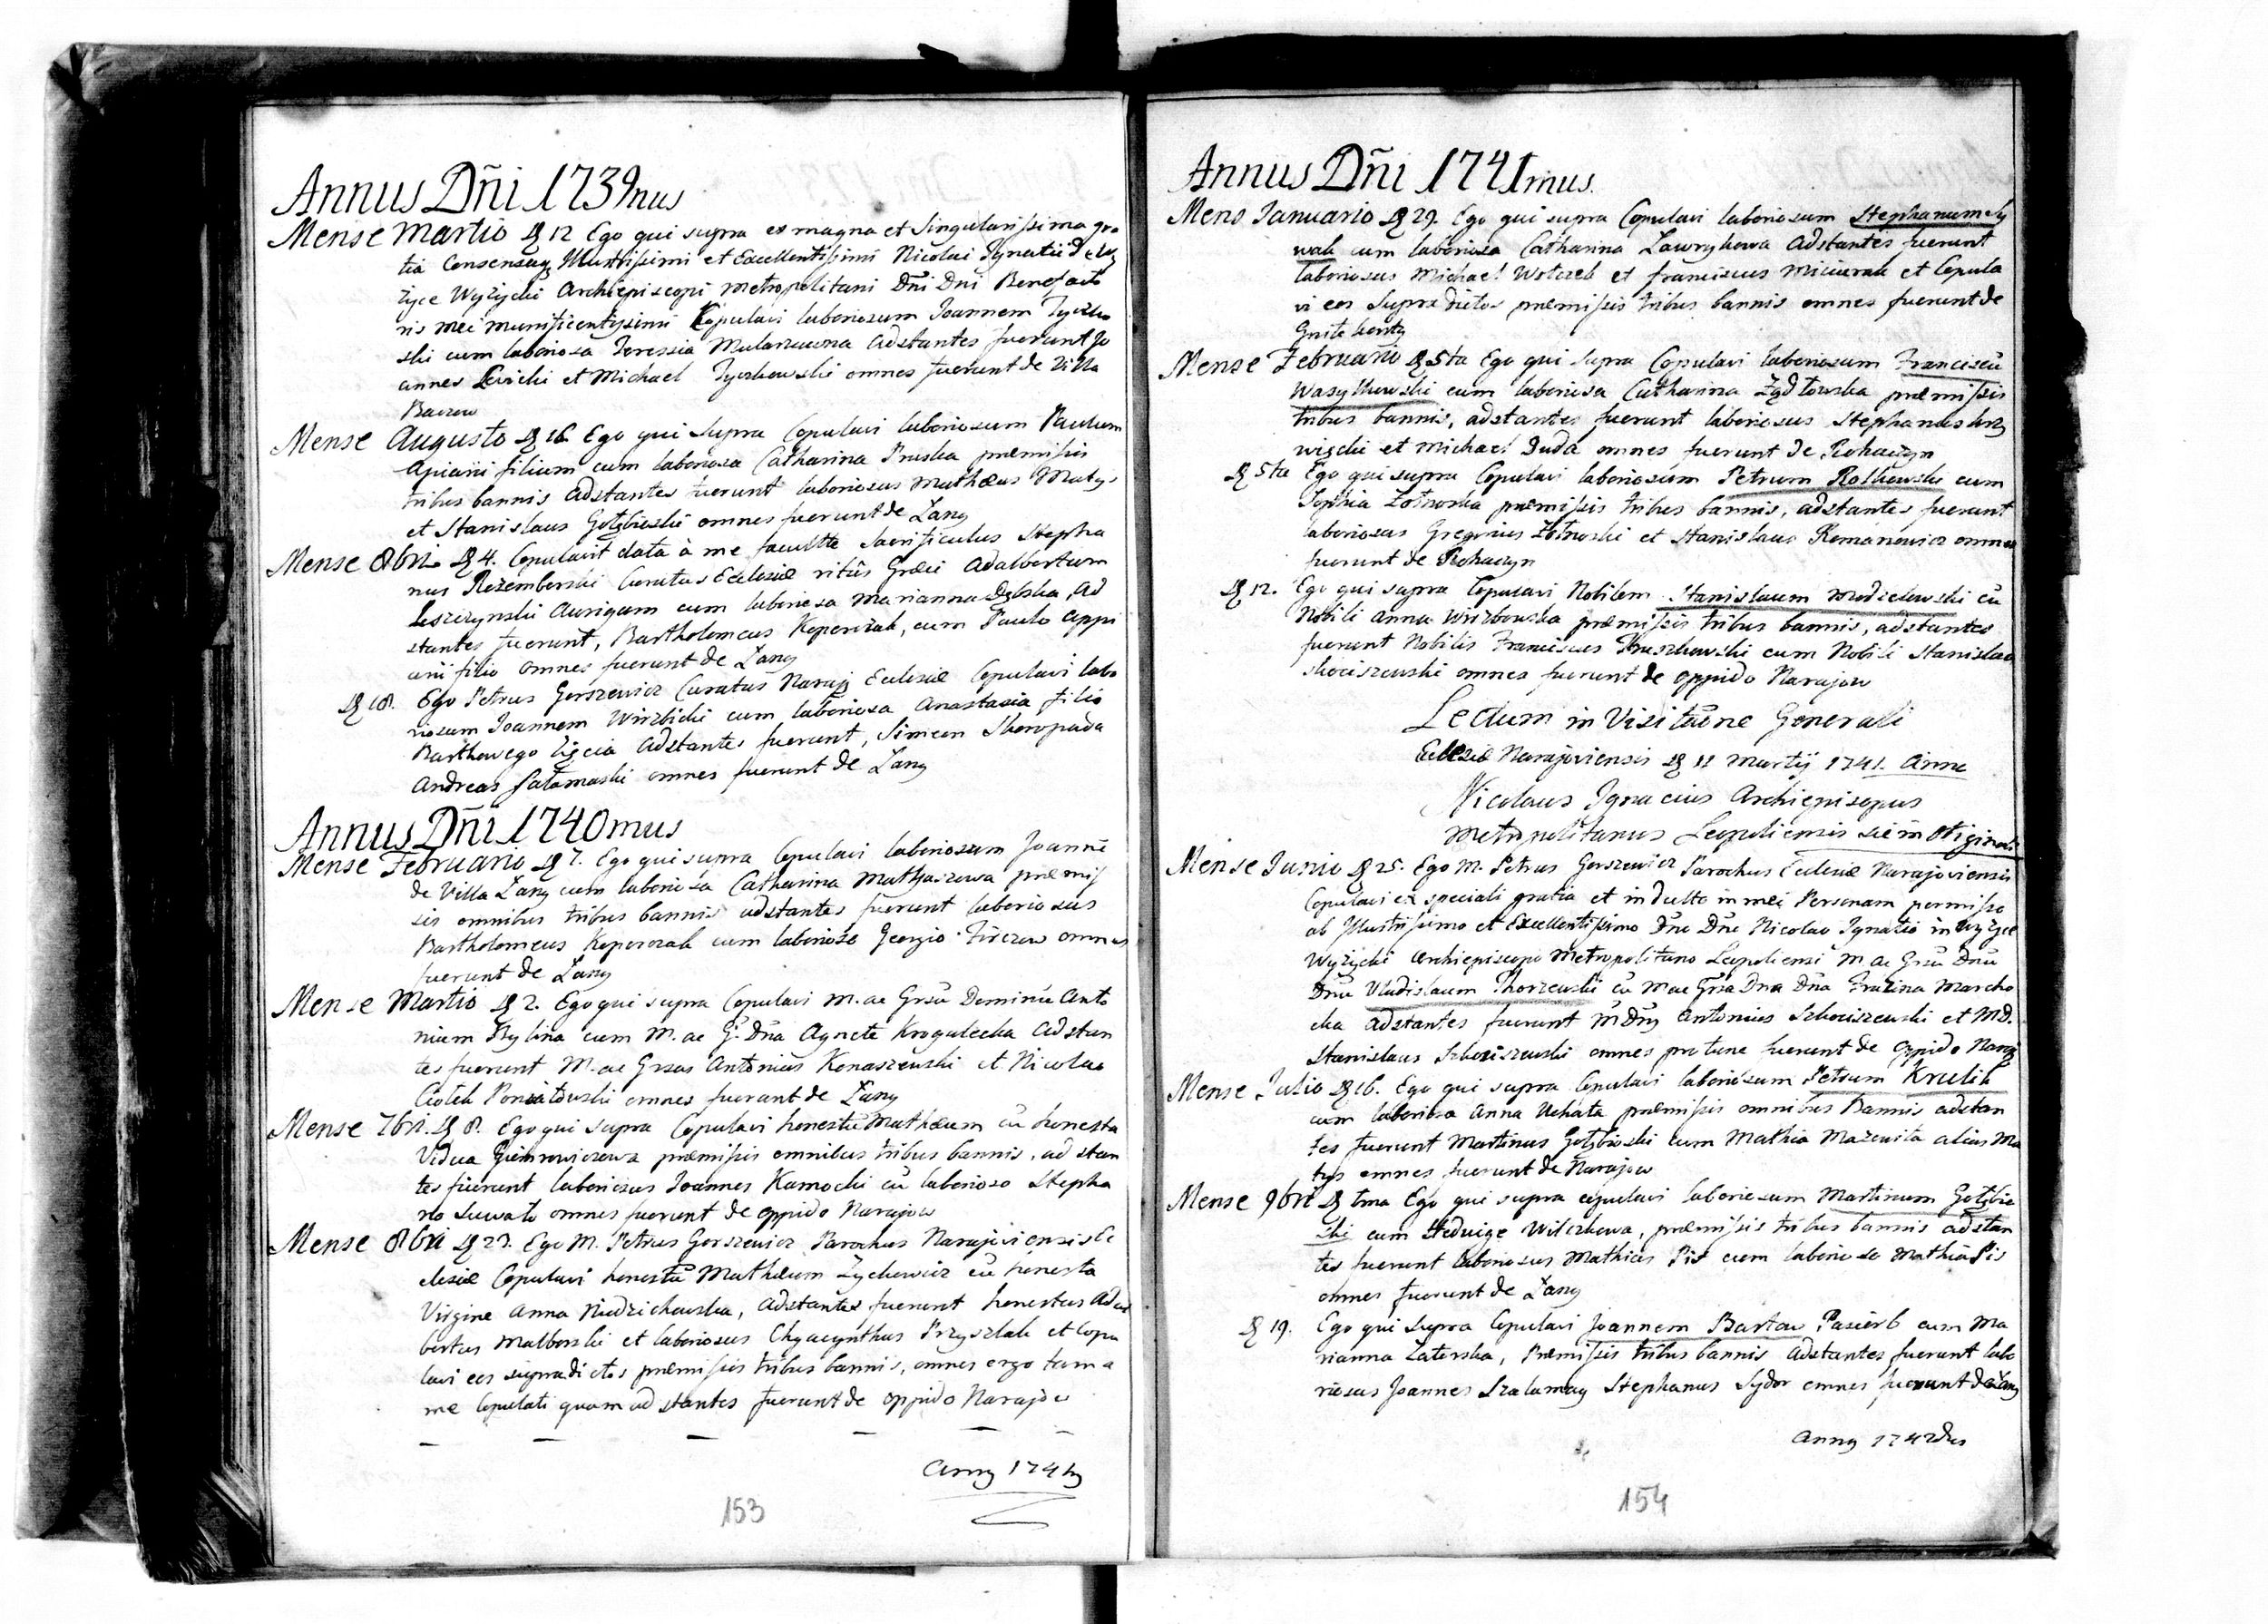 Annus Dñi 1739nus
Mense Martio 12 Ego qui supra ex magna et Singularissima gra
tia Consensuq Illustrissimi et Excellentissimi Nicolai Ignatii de
życe Wyżycki Archiepiscopi Metropolitani Dñi Dñi Benefacto
ris mei munificentissimi Copulavi laboriosum Joannem Tyczko
ski cum laboriosa Teressia Mularzuwna adstantes fuerunt Jo
annes Levicki et Michael Tyczkowski omnes fuerunt de Villa
Mense Augusto 16 Ego qui Supra Copulavi laboriosum Paulum
Apiarii filium cum laboriosa Catharina Pruska præmissis
tribus bannis adstantes fuerunt laboriosus Mathæus Matys
et Stanislaus Gołębioski omnes fuerunt de Łany
Mense 8bri 4. Copulavit data à me facultte Sacrificulus Stepha
nus Rozemberski Curatus Ecclesiæ ritûs Græci Adalbertum
Leszczynski Aurigam cum laboriosa Marianna Dębska, Ad
stantes fuerunt, Bartholomeus Koperczak, cum Paulo appi
arii filio omnes fuerunt de Łany
18. Ego Petrus Gorszewicz Curatus Naraj Ecclesiæ Copulavi labo
riosum Joannem Wirzbicki cum laboriosa Anastasia filio
Barthowego Zięcia adstantes fuerunt, Simeon Skoropada
Andreas Sałamaski omnes fuerunt de Łany
Annus Dñi 1740mus
Mense Februario 7. Ego qui supra Copulavi laboriosum Joanne
de Villa Łany cum laboriosa Catharina Mathaszowa præmis
sis omnibus tribus bannis adstantes fuerunt laboriosus
Bartholomeus Koperczak cum laborioso Georgio omnes
fuerunt de Łany
Mense Martio 2. Ego qui supra Copulavi M. ac Grsũ Dominũ Anto
nium Rylina cum M. ac G. Dña Agneta Krogulecka adstan
tes fuerunt M. ac Grsus Antonius Konaszewski et Nicolaus
Ciołek Poniatowski omnes fuerunt de Łany
Mense 7bri. 8. Ego qui Supra Copulavi honestũ Mathæum cũ honesta
Vidua præmissis omnibus tribus bannis, ad stan
tes fuerunt laboriosus Joannes Kamocki cũ laborioso Stepha
no Suwało omnes fuerunt de oppido Narajow
Mense 8bri 23. Ego M. Petrus Gorszewicz Parochus Narajoviensis Ec
clesiæ Copulavi honestũ Mathæum Zychowicz cũ honesta
Virgine Anna Niedzichowska, adstantes fuerunt honestus Adal
bertus Malborski et laboriosus Chyacynthus Przyszlak et Copu
lavi eos supradictos præmissis tribus bannis, omnes ergo tam a
me Copulati quam ad stantes fuerunt de oppido Narajow
153
Annus Dñi 1741mus.
Mens Januario 29. Ego qui supra Copulavi laboriosum Stephanum
wak cum laboriosa Catharina Lawrykowa adstantes fuerunt
laboriosus Michael Wołczek et franciscus Miciurak et Copula
vi eos Supra dictos præmissis tribus bannis omnes fuerunt de
Mense Februario 5ta Ego qui supra Copulavi laboriosum Franciscũ
Wasylkowski cum laboriosa Catharina Żądłowska præmissis
tribus bannis, adstantes fuerunt laboriosus Stephanus
wicki et Michael Duda omnes fuerunt de Rohaczyn
5ta Ego qui supra Copulavi laboriosum Petrum Rolkowski cum
Sophia Zołnoska præmissis tribus bannis, adstantes fuerunt
laboriosus Gregorius Zołnoski et Stanislaus Romanowicz omnes
fuerunt de Rohaczyn
12. Ego qui supra Copulavi Nobilem Stanislaum Modzelewski cũ
Nobili Anna Wirzbowska præmissis tribus bannis, adstantes
fuerunt Nobilis Franciscus Pruszkowski cum Nobili Stanislao
Skociszewski omnes fuerunt de oppido Narajow
Lectum in Visitaõne Generali
Ecclesiæ Narajoviensis 11 Martij 1741. Anno
Nicolaus Ignacius Archiepiscopus
Metropolitanus Leopoliensis sic in Originali
Mense Junio 25. Ego M. Petrus Gorszewicz Parochus Ecclesiæ Narajoviensis
Copulavi ex speciali gratia et indulto in mei Personam permisso
ab Illustrissimo et Excellentissimo Dño Dño Nicolao Ignatio in Wyżyce
Wyżycki Archiepiscopo Metropolitano Leopoliensi M. ac Grsũ Dñũ
Dñũ Vladislaum Thorzewski cũ M ac Grsa Dña Dña Fruzina Marcho
cka adstantes fuerunt M Antonius Szkociszewski et MD.
Stanislaus Szkociszewski omnes pro tunc fuerunt de oppido Naraj
Mense Julio 16. Ego qui supra Copulavi laboriosum Petrum Krulik
cum laboriosa Anna Uchata præmissis omnibus Bannis adstan
tes fuerunt Martinus Gołębioski cum Mathia Mazowita alias Ma
tys omnes fuerunt de Narajow
Mense 9bri 1ma Ego qui supra copulavi laboriosum Martinum Gołębio
ski cum Hedvige Wilczkowa, præmissis tribus bannis adstan
tes fuerunt laboriosus Mathias Pis cum laborioso Mathia Pis
omnes fuerunt de Łany
19. Ego qui supra Copulavi Joannem Bartow Pasierb cum Ma
rianna Zaterska, Præmissis tribus bannis adstantes fuerunt labo
riosus Joannes Szalamay Stephanus Sydor omnes fuerunt de Łany
154